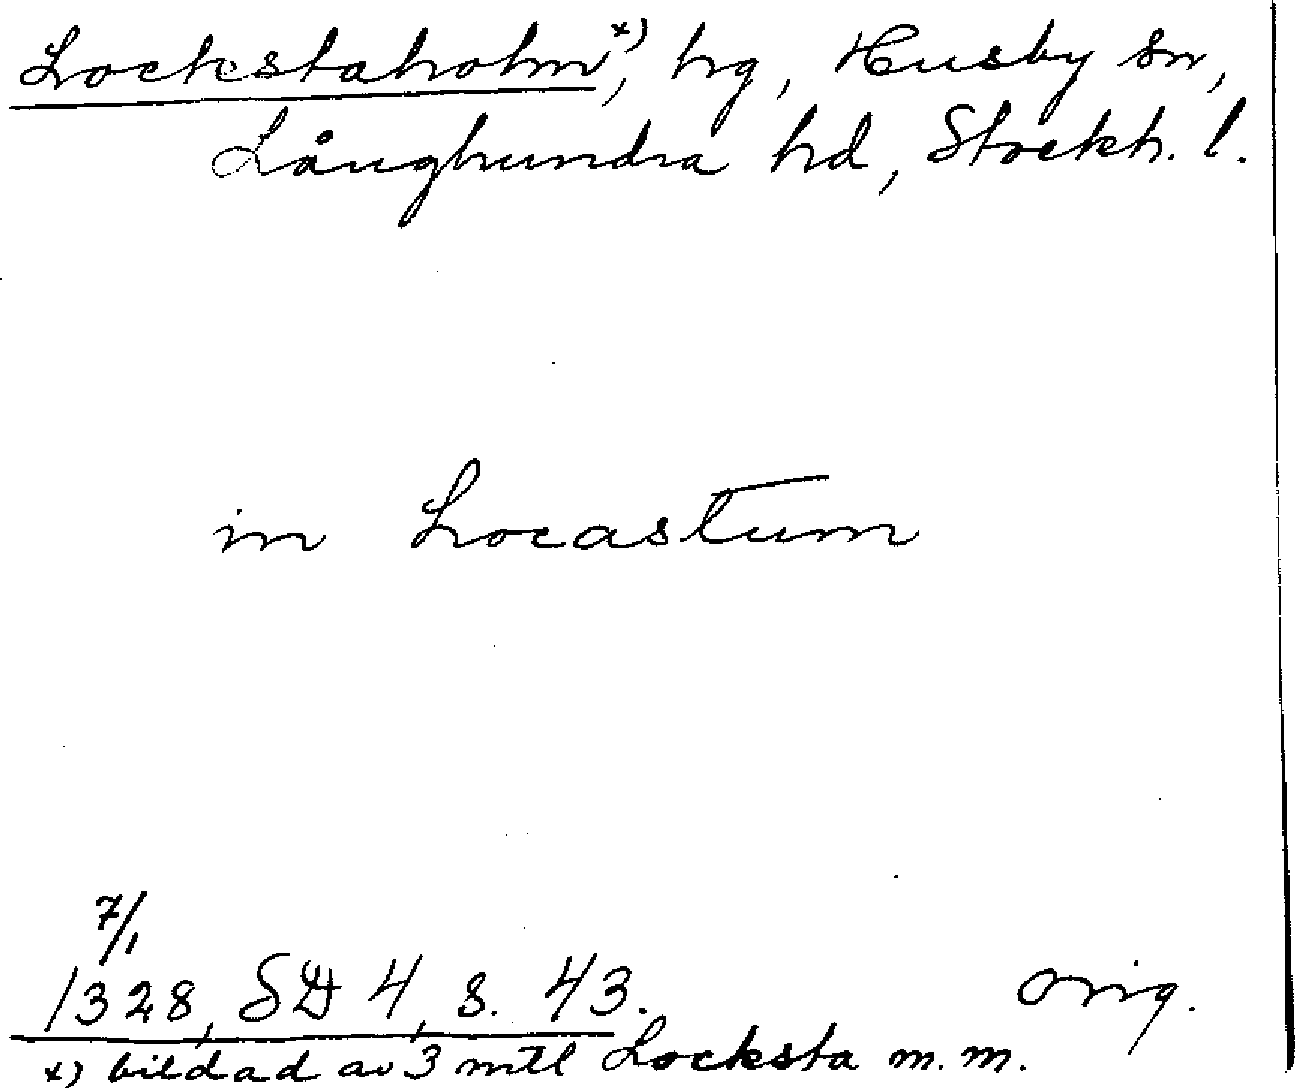 Lockstaholm x), hg, Husby sn,
Långhundra hd, Stockh. l.
in Locastum
7/1
1328, SD 4, s. 43. orig.
x) bildad av 3 mtl Locksta m.m.